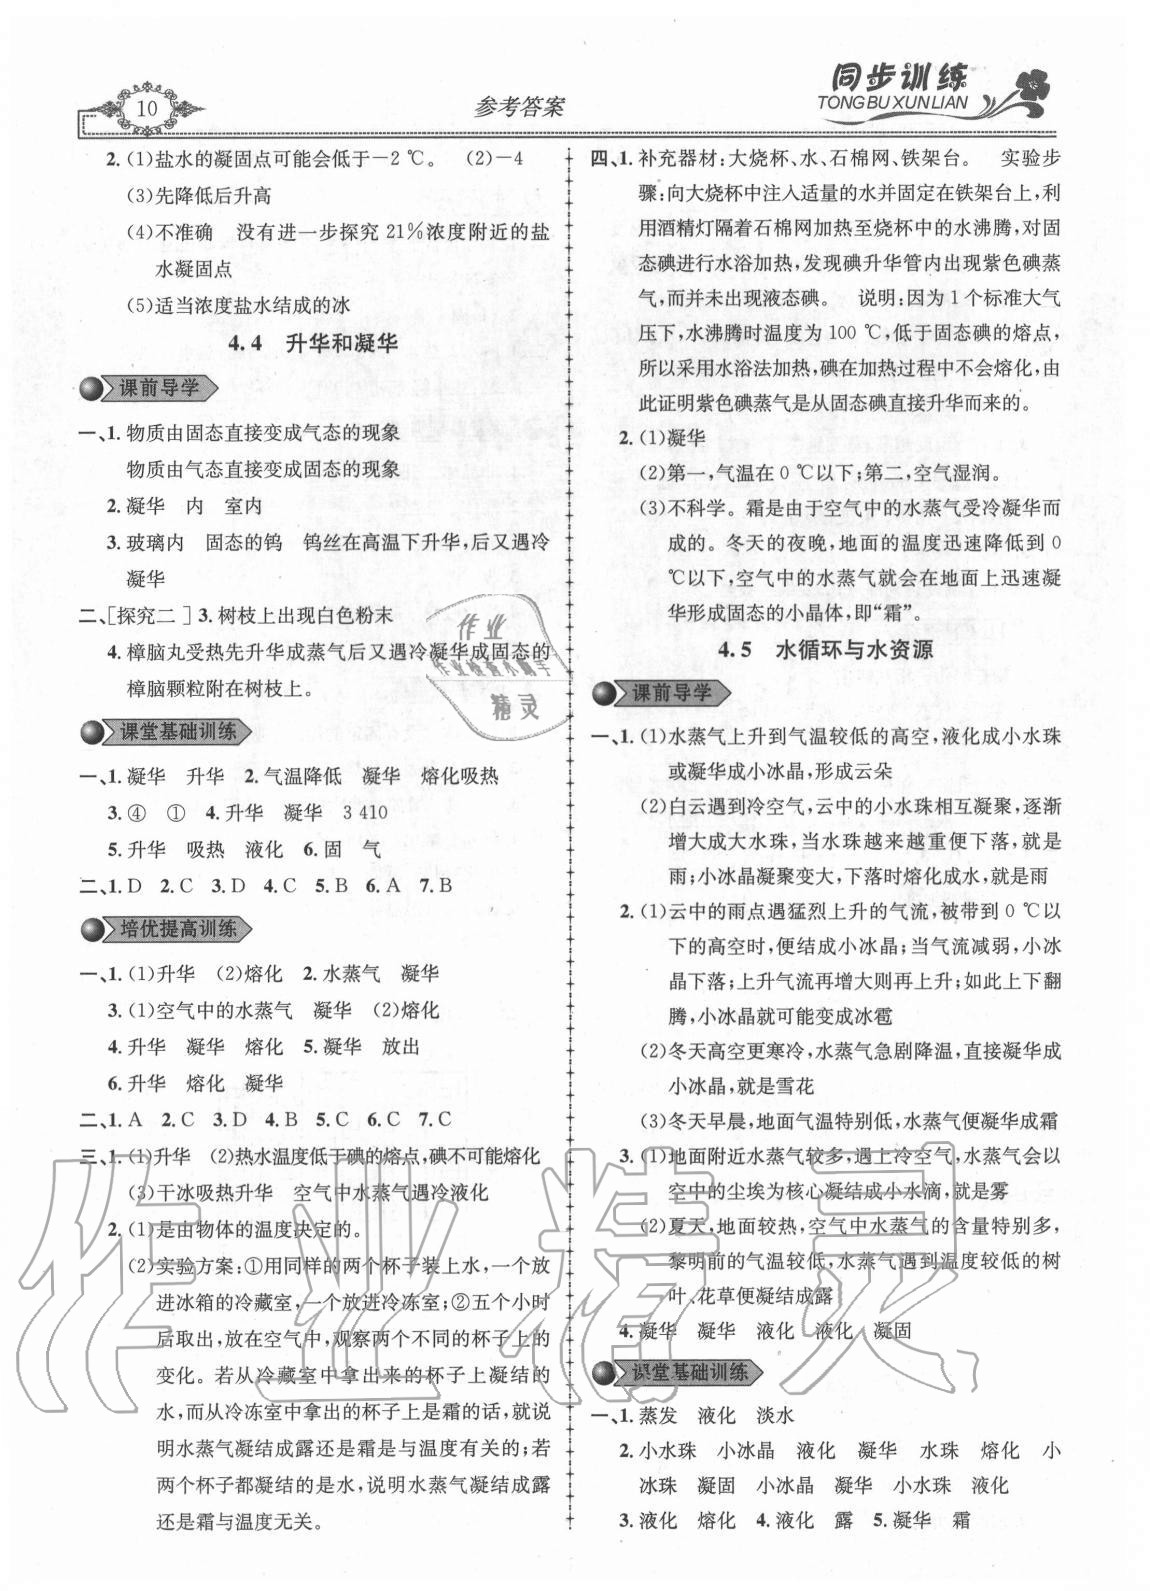 10
参考答案
同步训练
TONG BU XUN LIAN
2. (1)盐水的凝固点可能会低于－2 ℃。 (2)－4
(3)先降低后升高
(4)不准确 没有进一步探究21%浓度附近的盐
水凝固点
(5)适当浓度盐水结成的冰
4.4 升华和凝华
课前导学
一、1. 物质由固态直接变成气态的现象
物质由气态直接变成固态的现象
2. 凝华 内 室内
3. 玻璃内 固态的钨 钨丝在高温下升华,后又遇冷
凝华
二、[探究二] 3. 树枝上出现白色粉末
4. 樟脑丸受热先升华成蒸气后又遇冷凝华成固态的
樟脑颗粒附在树枝上。
课堂基础训练
一、1. 凝华 升华 2. 气温降低 凝华 熔化吸热
3. ④ ① 4. 升华 凝华 3 410
5. 升华 吸热 液化 6. 固 气
二、1. D 2. C 3. D 4. C 5. B 6. A 7. B
培优提高训练
一、1. (1)升华 (2)熔化 2. 水蒸气 凝华
3. (1)空气中的水蒸气 凝华 (2)熔化
4. 升华 凝华 熔化 5. 凝华 放出
6. 升华 熔化 凝华
二、1. A 2. C 3. D 4. B 5. C 6. C 7. C
三、1. (1)升华 (2)热水温度低于碘的熔点,碘不可能熔化
(3)干冰吸热升华 空气中水蒸气遇冷液化
2. (1)是由物体的温度决定的。
(2)实验方案:①用同样的两个杯子装上水,一个放
进冰箱的冷藏室,一个放进冷冻室;②五个小时
后取出,放在空气中,观察两个不同的杯子上的
变化。若从冷藏室中拿出来的杯子上凝结的
水,而从冷冻室中拿出的杯子上是霜的话,就说
明水蒸气凝结成露还是霜是与温度有关的;若
两个杯子都凝结的是水,说明水蒸气凝结成露
还是霜与温度无关。
四、1. 补充器材:大烧杯、水、石棉网、铁架台。 实验步
骤:向大烧杯中注入适量的水并固定在铁架台上,利
用酒精灯隔着石棉网加热至烧杯中的水沸腾,对固
态碘进行水浴加热,发现碘升华管内出现紫色碘蒸
气,而并未出现液态碘。 说明:因为1个标准大气
压下,水沸腾时温度为100 ℃,低于固态碘的熔点,
所以采用水浴法加热,碘在加热过程中不会熔化,由
此证明紫色碘蒸气是从固态碘直接升华而来的。
2. (1)凝华
(2)第一,气温在0 ℃以下;第二,空气湿润。
(3)不科学。霜是由于空气中的水蒸气受冷凝华而
成的。冬天的夜晚,地面的温度迅速降低到0
℃以下,空气中的水蒸气就会在地面上迅速凝
华形成固态的小晶体,即“霜”。
4.5 水循环与水资源
课前导学
一、1. (1)水蒸气上升到气温较低的高空,液化成小水珠
或凝华成小冰晶,形成云朵
(2)白云遇到冷空气,云中的小水珠相互凝聚,逐渐
增大成大水珠,当水珠越来越重便下落,就是
雨;小冰晶凝聚变大,下落时熔化成水,就是雨
2. (1)云中的雨点遇猛烈上升的气流,被带到0 ℃以
下的高空时,便结成小冰晶;当气流减弱,小冰
晶下落;上升气流再增大则再上升;如此上下翻
腾,小冰晶就可能变成冰雹
(2)冬天高空更寒冷,水蒸气急剧降温,直接凝华成
小冰晶,就是雪花
(3)冬天早晨,地面气温特别低,水蒸气便凝华成霜
3. (1)地面附近水蒸气较多,遇上冷空气,水蒸气会以
空中的尘埃为核心凝结成小水滴,就是雾
(2)夏天,地面较热,空气中水蒸气的含量特别多,
黎明前的气温较低,水蒸气遇到温度较低的树
叶、花草便凝结成露
4. 凝华 凝华 液化 液化 凝固
课堂基础训练
一、1. 蒸发 液化 淡水
2. 小水珠 小冰晶 液化 凝华 水珠 熔化 小
冰珠 凝固 小冰晶 凝华 小水珠 液化
3. 液化 熔化 4. 液化 露 5. 凝华 霜
作业
作业检查小帮手
精灵
作业精灵